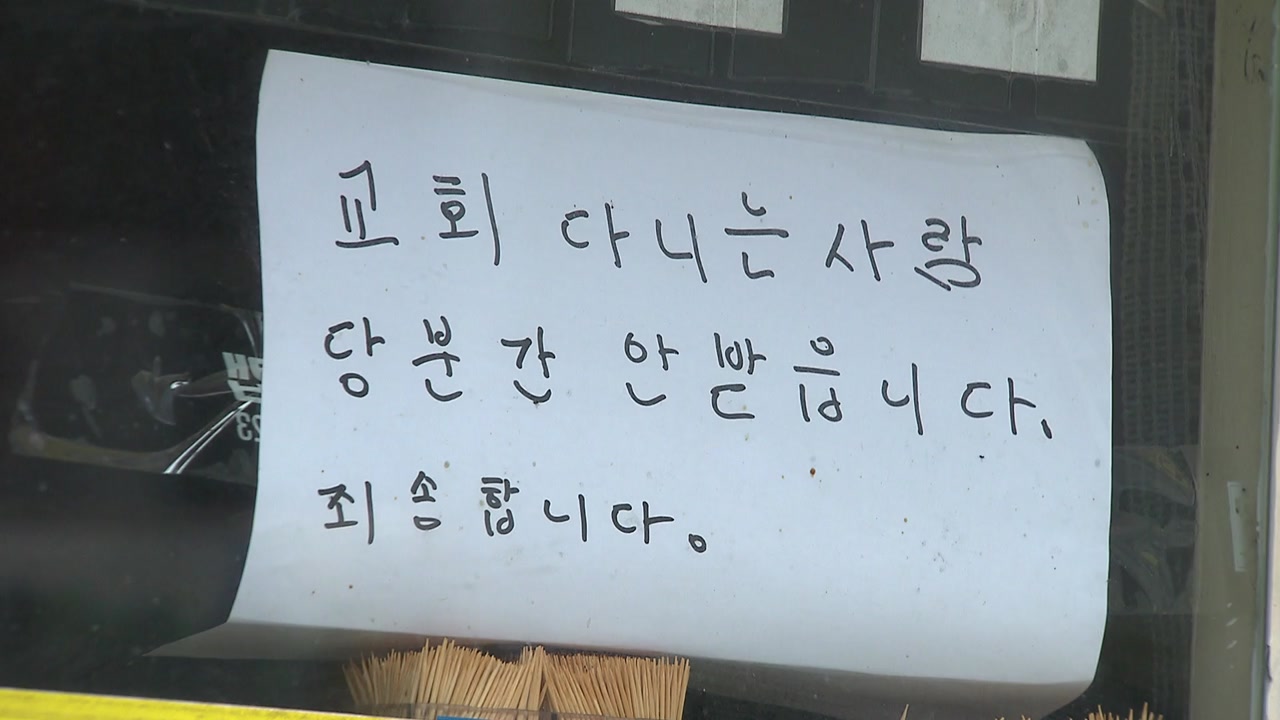 교회 다니는 사람
당분간 안받읍니다.
죄송합니다.